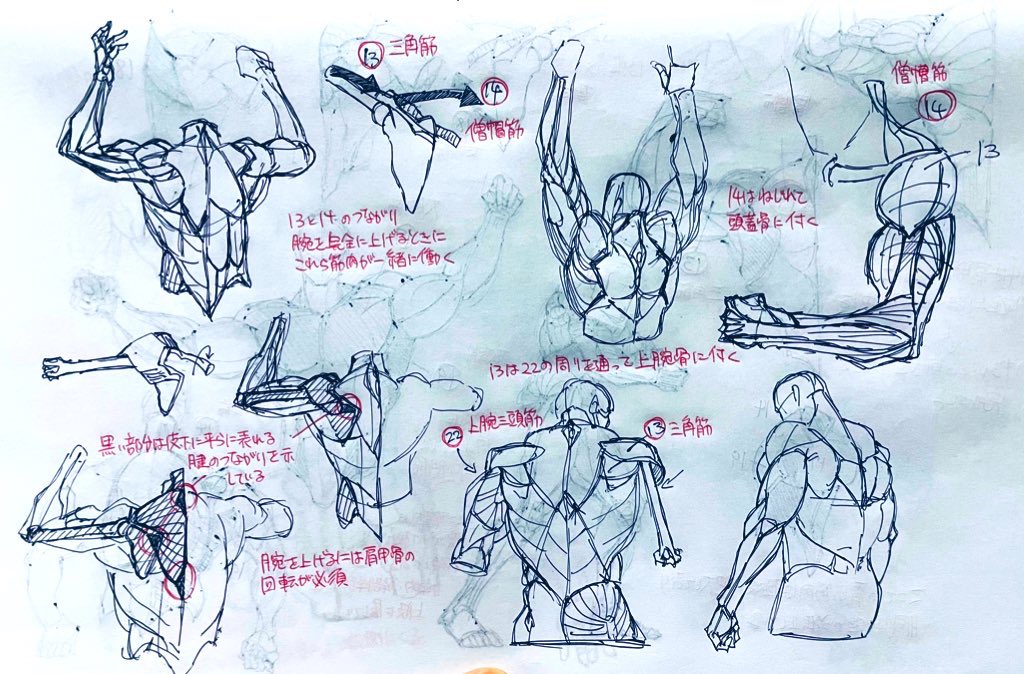 ⑬ 三角筋
⑭
僧帽筋
13と14のつながり
腕を完全に上げるときに
これら筋肉が一緒に働く
僧帽筋
⑭
13
14はねじれて
頭蓋骨に付く
13は22の周りを通って上腕骨に付く
㉒ 上腕三頭筋
⑬ 三角筋
黒い部分は皮下に平らに表れる
腱のつながりを示
している
腕を上げるには肩甲骨の
回転が必須